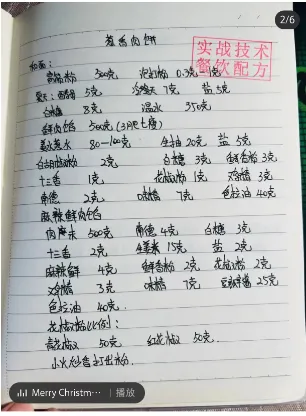 2/6
葱香肉饼
实战技术
餐饮配方
和面:
富强粉 500克 泡打粉 0.3克
夏天: 5克 冷 7克 盐 5克
白糖 8克 温水 350克
鲜肉馅 500克 (3肥七瘦)
葱姜水 80—100克 生抽 20克 盐 5克
白胡椒粉 2克 白糖 3克 鲜香粉 3克
十三香 1克 花椒粉 1克 鸡精 3克
南德 2克 味精 7克 色拉油 40克
麻辣鲜肉馅
肉 500克 南德 4克 白糖 3克
十三香 2克 生姜米 15克 盐 2克
麻辣鲜 4克 鲜香粉 2克 花椒粉 2克
鸡精 3克 味精 7克 豆瓣酱 25克
色拉油 40克
花椒粉比例:
青花椒 50克 红花椒 50克
小火炒香打出粉
Merry Christm··· | 播放